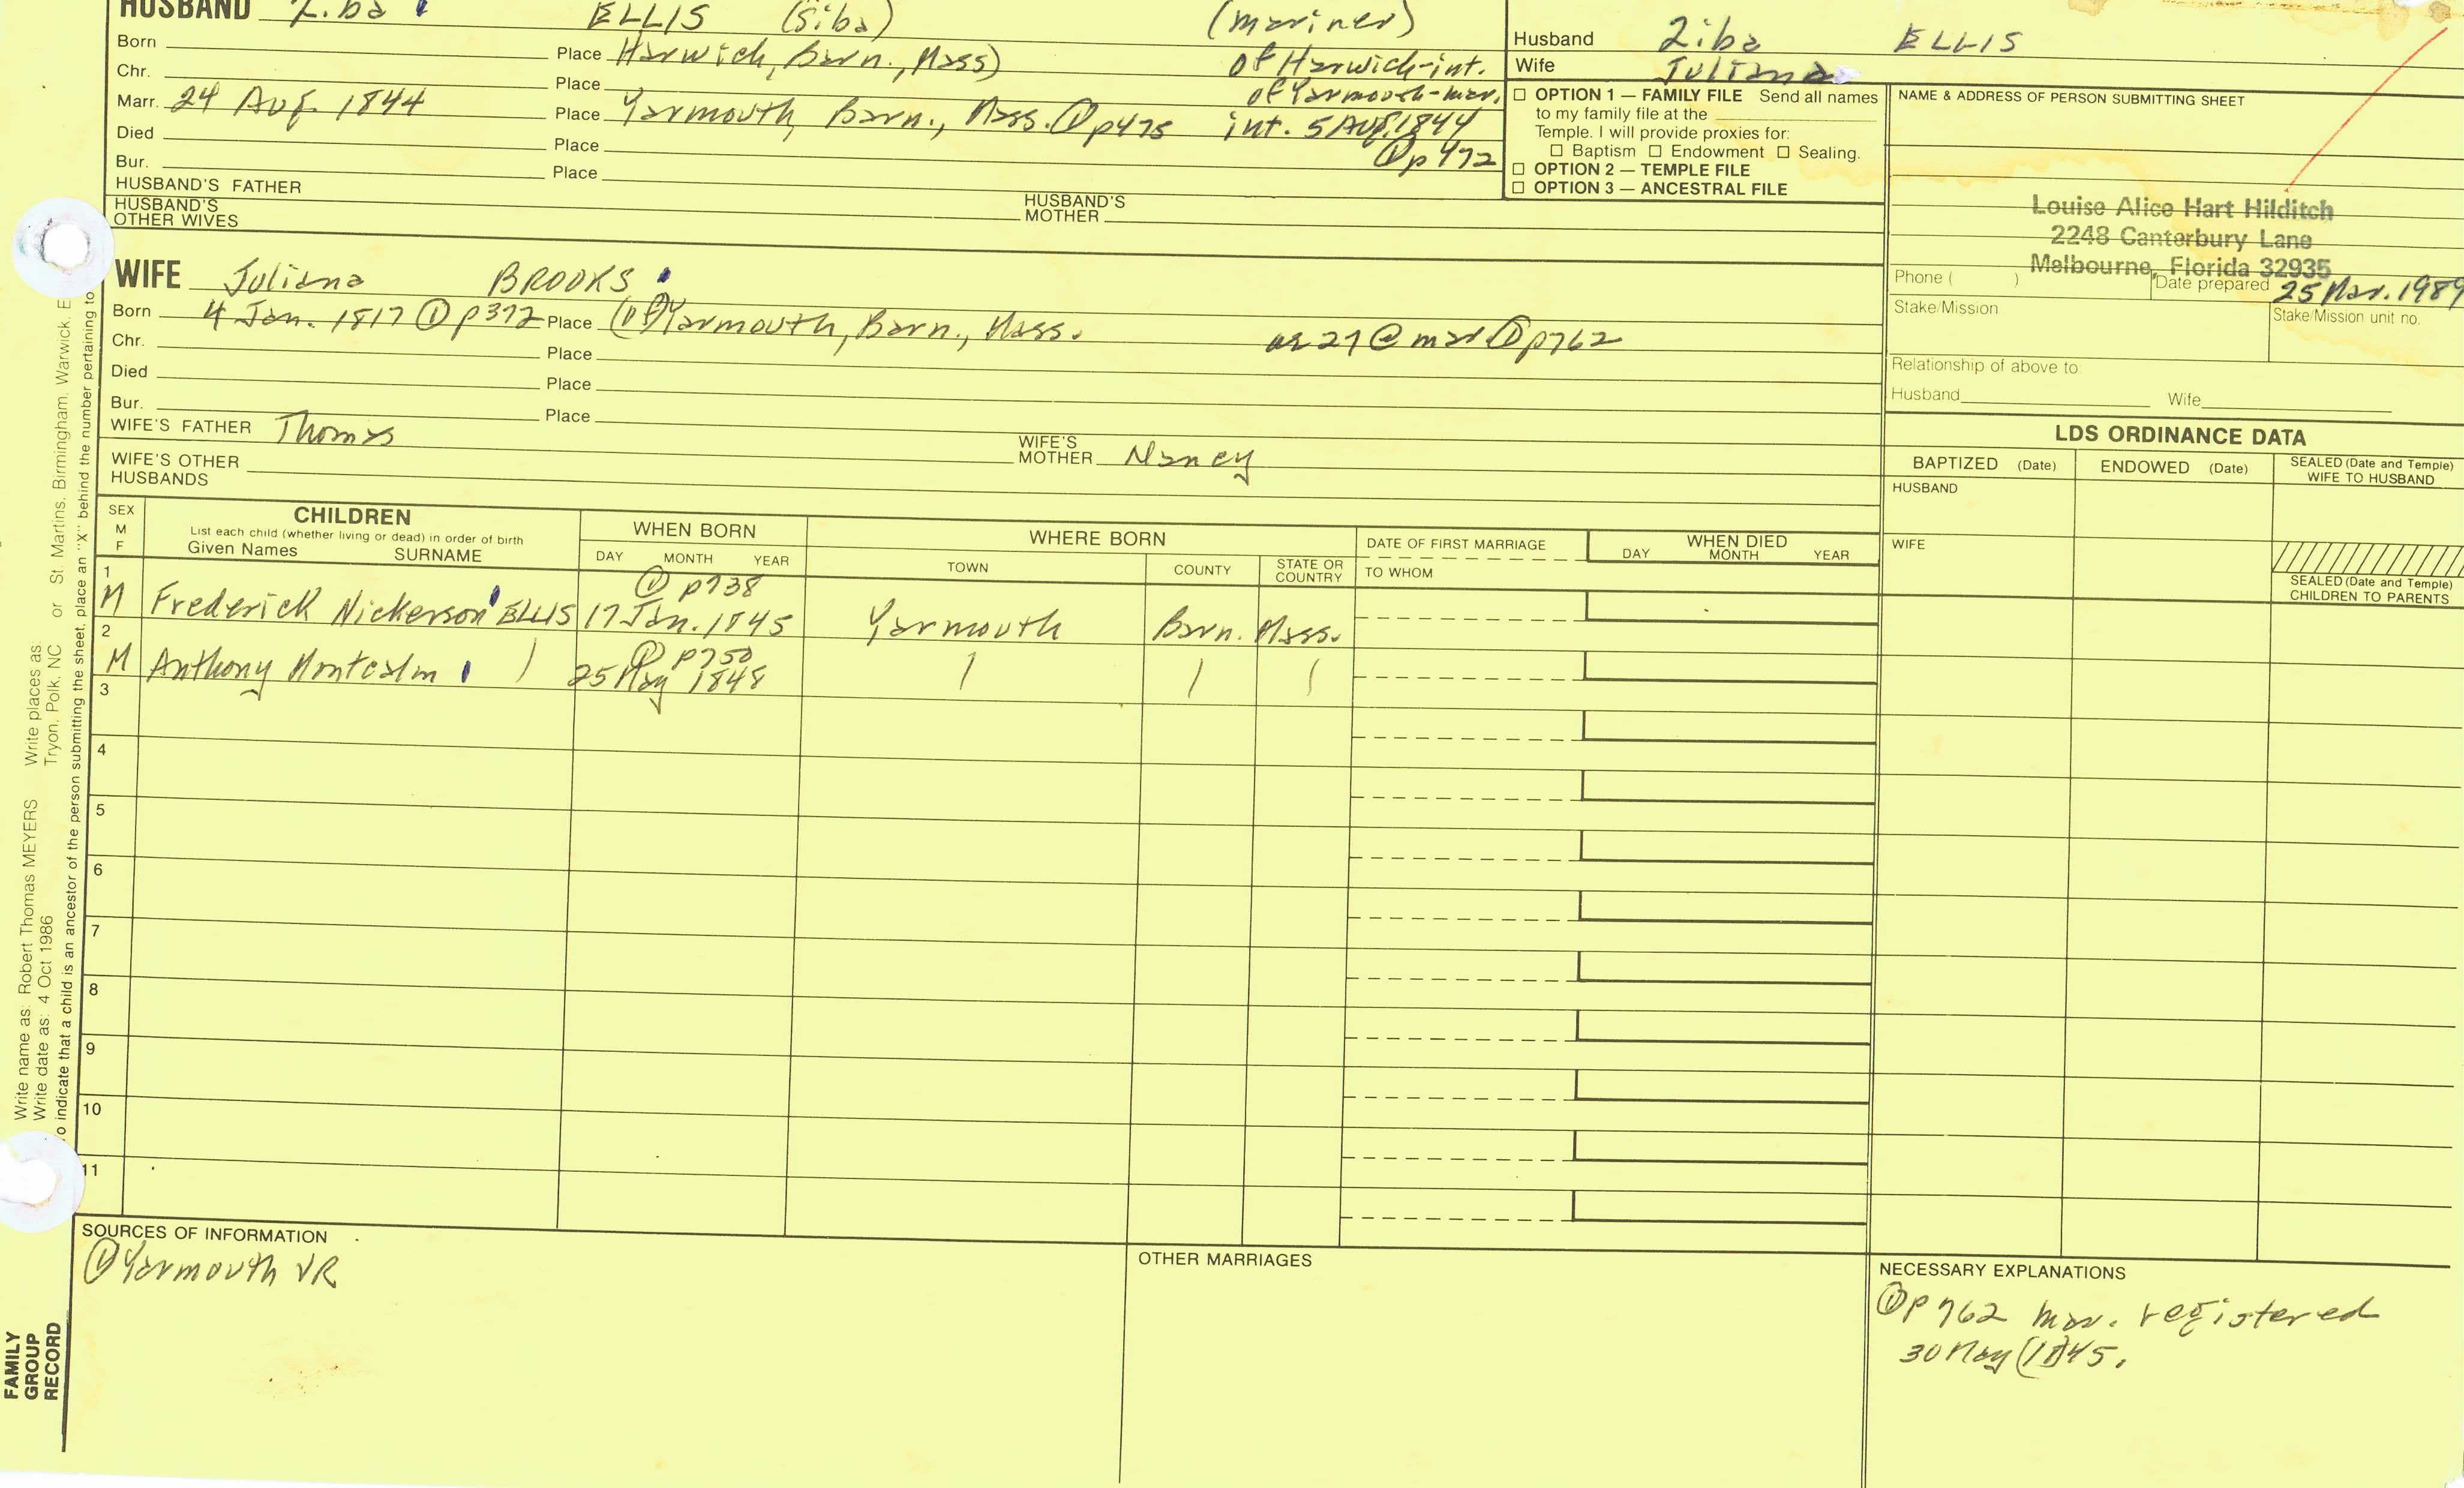 HUSBAND Ziba ELLIS (Siba) (mariner)
Born Place Harwich, Barn., Mass) of Harwich-int.
Chr. Place of Yarmouth-mar.
Marr. 24 Aug. 1844 Place Yarmouth, Barn., Mass. ① p475 int. 5 Aug. 1844
Died Place ① p472
Bur. Place
HUSBAND'S FATHER
HUSBAND'S MOTHER
HUSBAND'S OTHER WIVES
Husband Ziba ELLIS
Wife Juliana
☐ OPTION 1 — FAMILY FILE Send all names
to my family file at the
Temple. I will provide proxies for:
☐ Baptism ☐ Endowment ☐ Sealing.
☐ OPTION 2 — TEMPLE FILE
☐ OPTION 3 — ANCESTRAL FILE
NAME & ADDRESS OF PERSON SUBMITTING SHEET
Louise Alice Hart Hilditch
2248 Canterbury Lane
Melbourne, Florida 32935
Phone ( ) Date prepared 25 Mar. 1989
Stake/Mission Stake/Mission unit no.
Relationship of above to:
Husband Wife
WIFE Juliana BROOKS
Born 4 Jan. 1817 ① p372 Place (of) Yarmouth, Barn., Mass. ae 27 @ mar ① p762
Chr. Place
Died Place
Bur. Place
WIFE'S FATHER Thomas
WIFE'S MOTHER Nancy
WIFE'S OTHER HUSBANDS
LDS ORDINANCE DATA
BAPTIZED (Date) ENDOWED (Date) SEALED (Date and Temple) WIFE TO HUSBAND
HUSBAND
WIFE
SEALED (Date and Temple) CHILDREN TO PARENTS
SEX M F
CHILDREN
List each child (whether living or dead) in order of birth
Given Names SURNAME
WHEN BORN
DAY MONTH YEAR
WHERE BORN
TOWN COUNTY STATE OR COUNTRY
DATE OF FIRST MARRIAGE
TO WHOM
WHEN DIED
DAY MONTH YEAR
1 ① p738
M Frederick Nickerson ELLIS 17 Jan. 1845 Yarmouth Barn. Mass.
2 ① p750
M Anthony Montcalm 25 May 1848
3
4
5
6
7
8
9
10
11
SOURCES OF INFORMATION
① Yarmouth VR
OTHER MARRIAGES
NECESSARY EXPLANATIONS
① p 762 mar. registered
30 May (18)45.
Write name as: Robert Thomas MEYERS Write places as:
Write date as: 4 Oct 1986 Tryon, Polk, NC or St. Martins, Birmingham, Warwick, E
o indicate that a child is an ancestor of the person submitting the sheet, place an "X" behind the number pertaining to
FAMILY
GROUP
RECORD